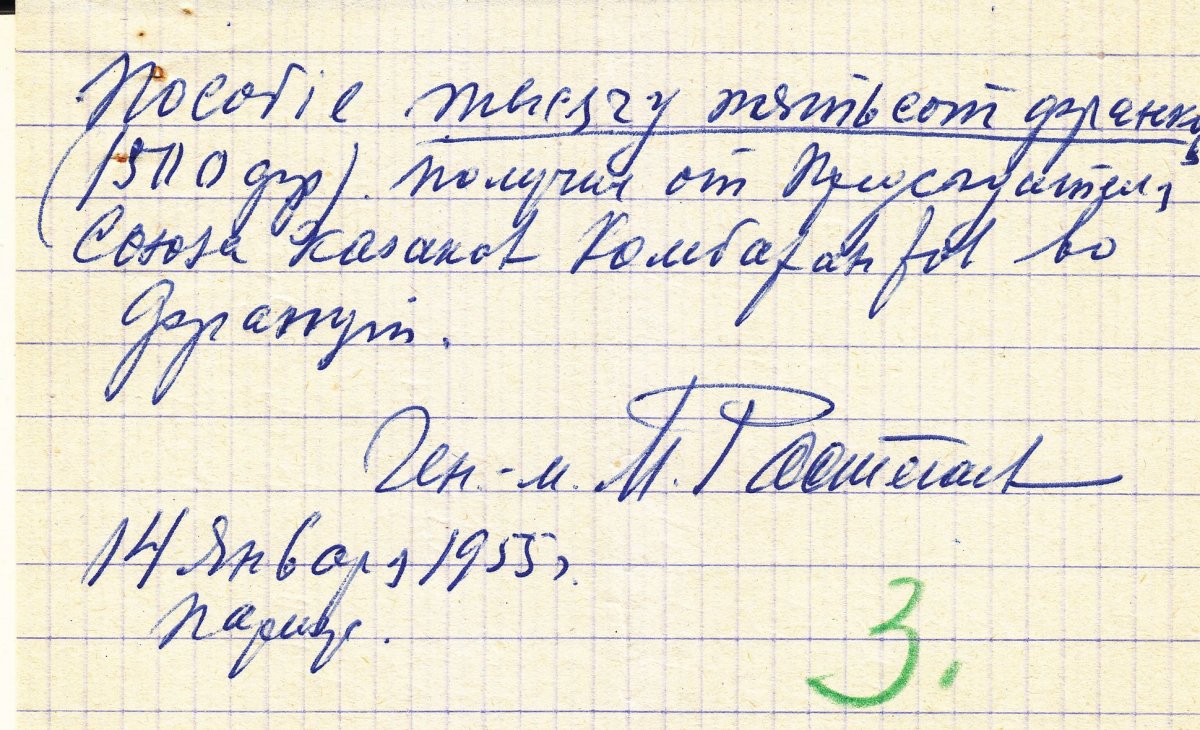 Пособіе тысячу пятьсот франков
(1500 фр). получил от Председателя
Союза Казаков Комбатантов во
Франціи.
Ген.-м. М. Растегаев
14 Января 1955 г.
Париж.
3.